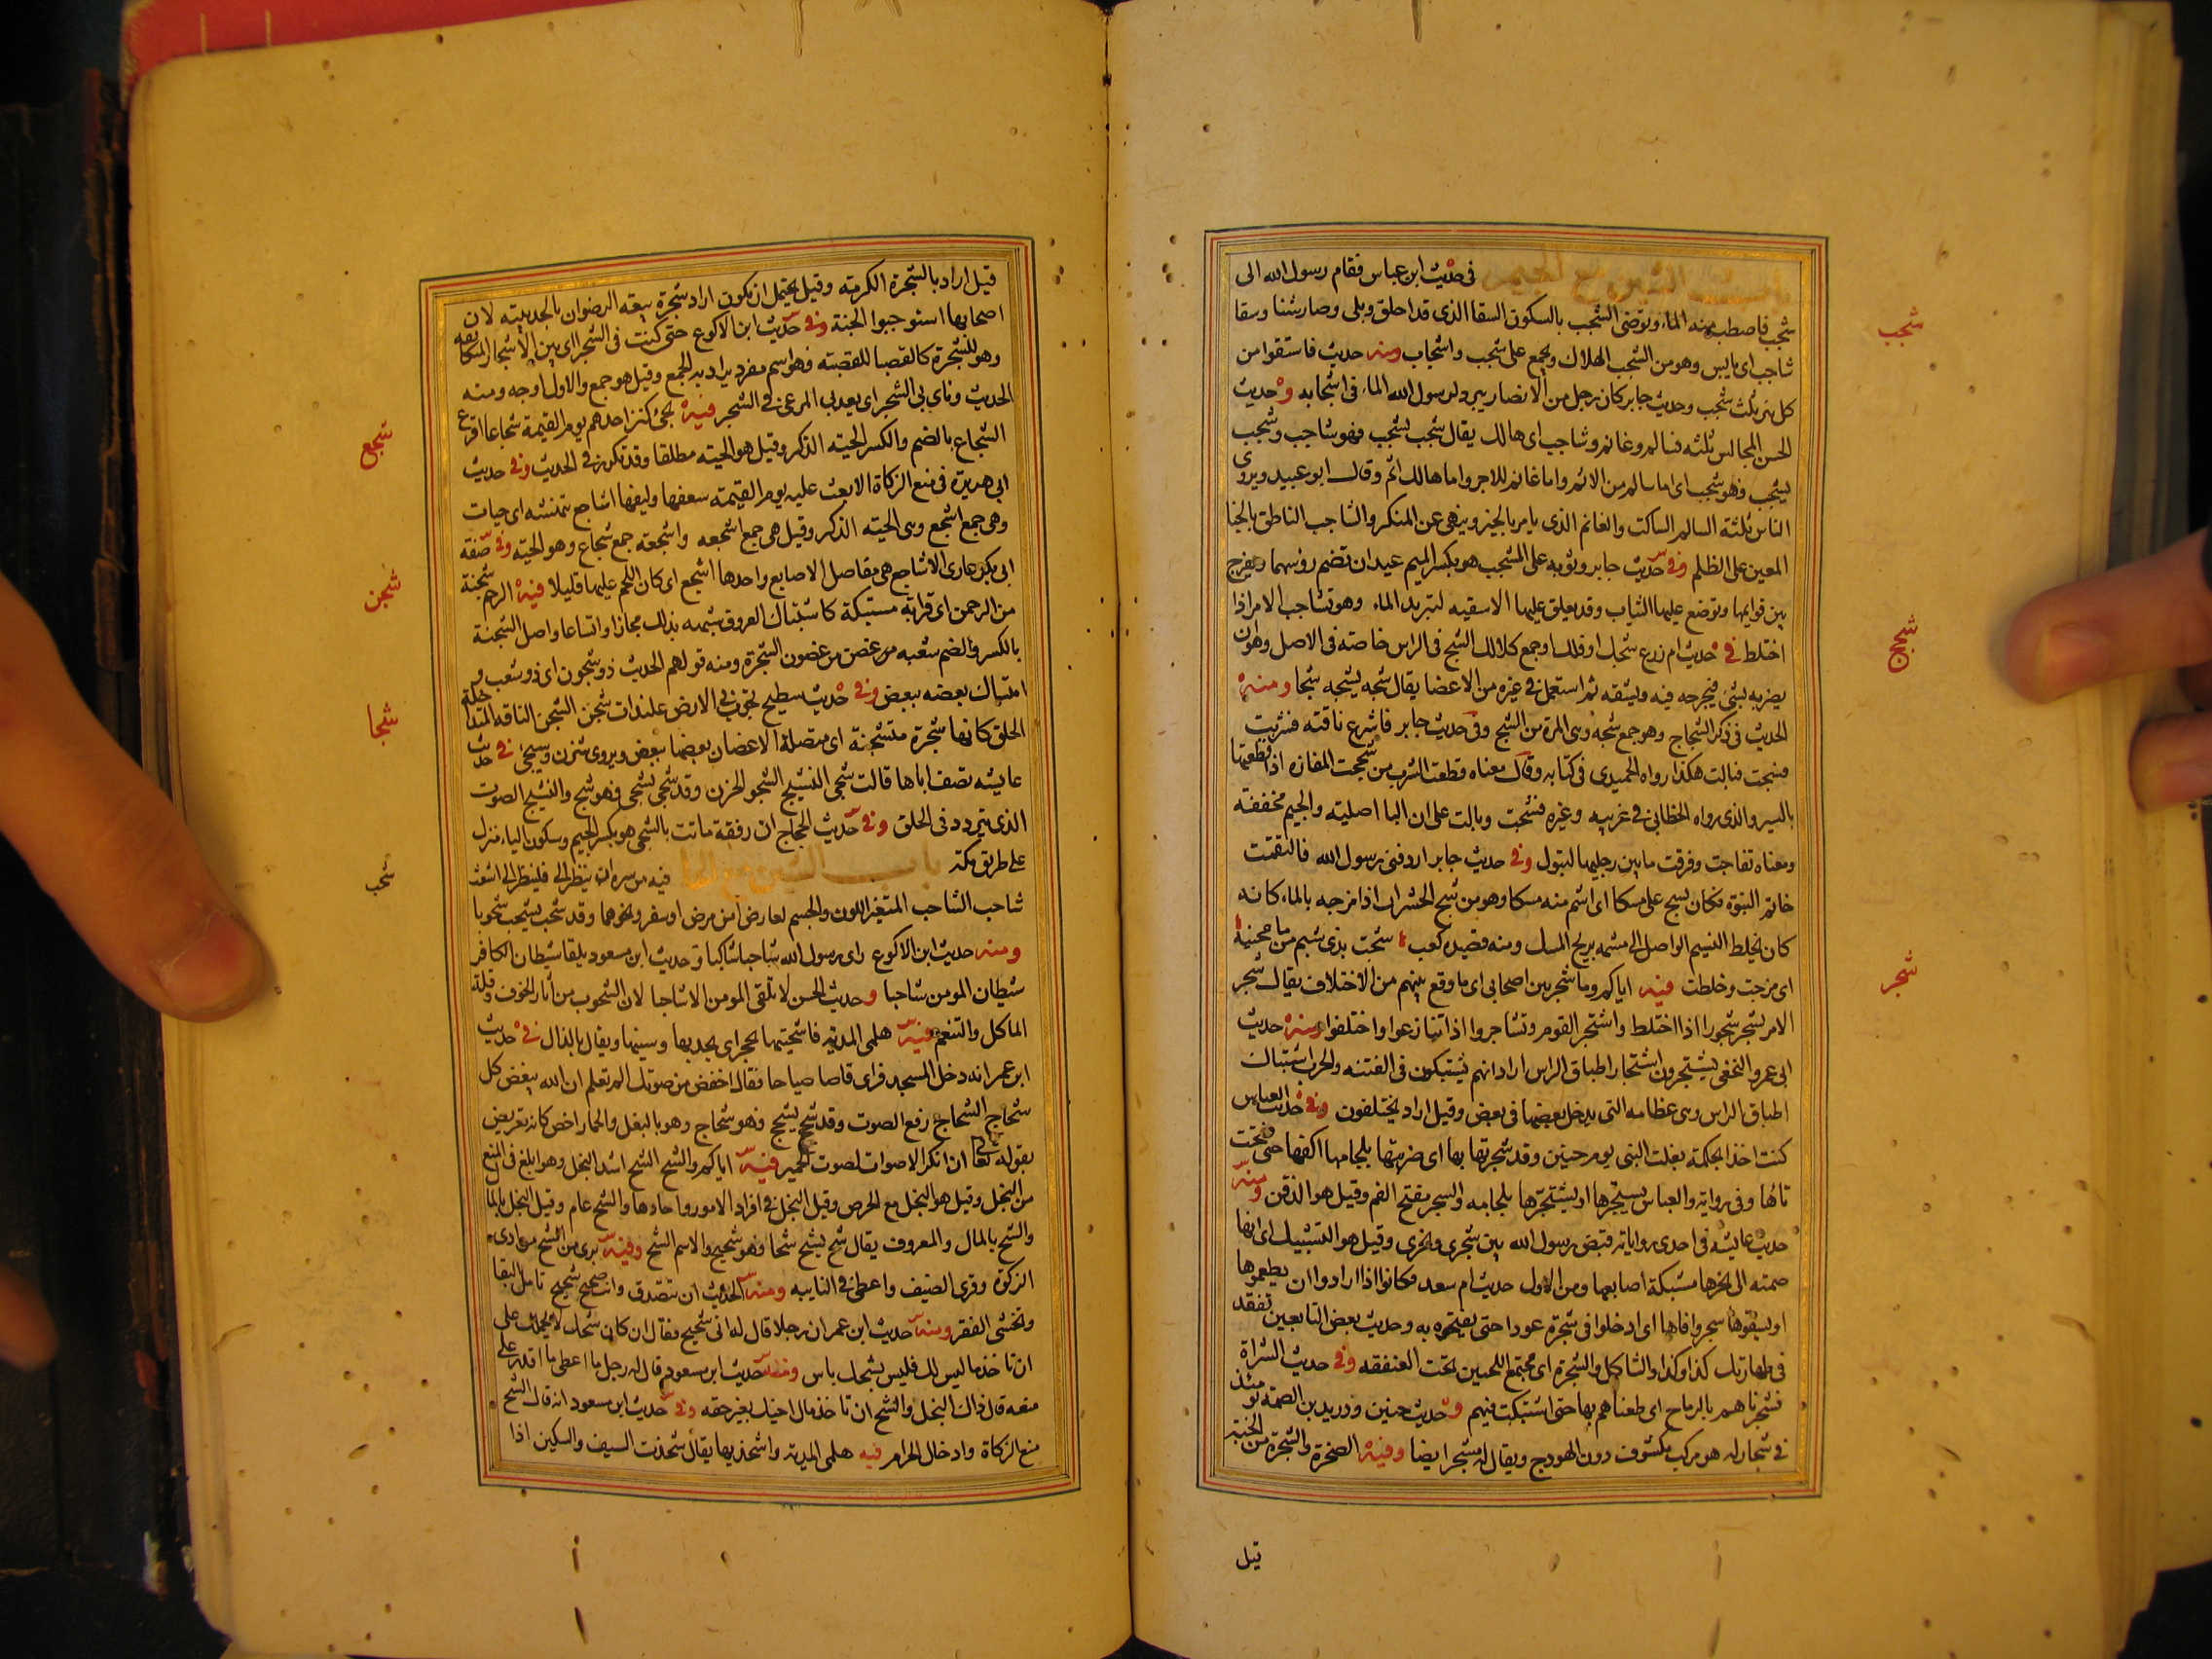 باب الشين مع الجيم في حديث ابن عباس فقام رسول الله الى
شجب فاصطب منه الماء وتوضئ الشجب بالسكون السقا الذى قد اخلق وبلى وصار شنا وسقا
شاجب اى يابس وهو من الشجب الهلاك ويجمع على شجب واشجاب ومنه حديث فاستقوا من
كل بئر ثلث شجب وحديث جابر كان رجل من الانصار يبرد لرسول الله الماء فى اشجابه وحديث
الحسن المجالس ثلثه فسالم وغانم وشاجب اى هالك يقال شجب يشجب فهو شاجب وشجب
يشجب فهو شجب اى اما سالم من الاثم واما غانم للاجر واما هالك اثم وقال ابو عبيد ويروى
الناس ثلثة السالم الساكت والغانم الذى يامر بالخير وينهى عن المنكر والشاجب الناطق بالخنا
المعين على الظلم وفى حديث جابر وثوبه على المشجب هو بكسر الميم عيدان تضم رؤسها ويفرج
بين قوايمها وتوضع عليها الثياب وقد يعلق عليها الاسقيه لتبريد الماء وهو تشاجب الامر اذا
اختلط فى حديث ام زرع شجك او فلك او جمع كلا لك الشج فى الراس خاصة فى الاصل وهو ان
يضربه بشئ فيجرحه فيه ويشقه ثم استعمل فى غيره من الاعضا يقال شجه يشجه شجا ومنه
الحديث فى ذكر الشجاج وهو جمع شجه وهى المرة من الشج وفى حديث جابر فاشرع ناقته فشربت
فشجت فبالت هكذا رواه الحميدى فى كتابه وقال معناه قطعت الشرب من شججت المفازه اذا قطعتها
بالسير والذى رواه الخطابى فى غريبه وغيره فشجت وبالت على ان الفا اصليه والجيم مخففة
ومعناه تفاجت وفرقت ما بين رجليها لتبول وفى حديث جابر اردفنى رسول الله فالتقمت
خاتم النبوة فكان يشج على مسكا اى اشم منه مسكا وهو من شج الشراب اذا مزجه بالماء كانه
كان يخلط النسيم الواصل الى مشمه بريح المسك ومنه قصيد كعب شجت بذى شبم من ما محنيه
اى مزجت وخلطت فيه اياكم وما شجر بين اصحابى اى ما وقع بينهم من الاختلاف يقال شجر
الامر يشجر شجورا اذا اختلط واشتجر القوم وتشاجروا اذا تنازعوا واختلفوا ومنه حديث
ابى عمرو النخعى يشتجرون اشتجار اطباق الراس اراد انهم يشتبكون فى الفتنه والحرب اشتباك
اطباق الراس وهى عظامه التى يدخل بعضها فى بعض وقيل اراد يختلفون وفى حديث العباس
كنت اخذا بحكمة بغلت النبى يوم حنين وقد شجرتها بها اى ضربتها بلجامها اكفها حتى فتحت
فاها وفى رواية والعباس يشجرها او يشتجرها بلجامه والشجر مفتح الفم وقيل هو الذقن ومنه
حديث عايشه فى احدى رواياته قبض رسول الله بين شجرى ونحرى وقيل هو التشبيك اى انها
ضمته الى نحرها مشبكة اصابعها ومن الاول حديث ام سعد فكانوا اذا ارادوا ان يطعموها
او يسقوها شجروا فاها اى ادخلوا فى شجره عودا حتى يفتحوه به وحديث بعض التابعين تفقد
فى طهارتك كذا وكذا والشاكل والشجر اى مجتمع اللحيين تحت العنفقه وفى حديث الشراة
فشجرناهم بالرماح اى طعناهم بها حتى اشتبكت فيهم وحديث حنين ودريد بن الصمة يومئذ
فى شجار له هو مركب مكشوف دون الهودج ويقال له مشجر ايضا وفيه الصخرة والشجرة من الجنة
قيل
شجب
شجج
شجر
قيل اراد بالشجرة الكرمة وقيل يحتمل ان يكون اراد شجرة بيعة الرضوان بالحديبيه لان
اصحابها استوجبوا الجنة وفى حديث ابن الاكوع حتى كنت فى الشجرا اى بين الاشجار المتكاثفه
وهو للشجرة كالقصبا للقصبة فهو اسم مفرد يراد به الجمع وقيل هو جمع والاول اوجه ومنه
الحديث وناى بى الشجر اى بعد بى المرعى فى الشجر فيه يجئ كنز احدهم يوم القيمة شجاعا اقرع
الشجاع بالضم والكسر الحية الذكر وقيل هو الحية مطلقا وقد تكرر فى الحديث وفى حديث
ابى هريرة فى منع الزكاة الا بعث عليه يوم القيمة سعفها وليفها اشاجع تنهشه اى حيات
وهى جمع اشجع وهى الحيه الذكر وقيل هى جمع اشجعه واشجعة جمع شجاع وهو الحيه وفى صفة
ابى بكر عارى الاشاجع هى مفاصل الاصابع واحدها اشجع اى كان اللحم عليها قليلا فيه الرحم شجنة
من الرحمن اى قرابة مشتبكة كاشتباك العروق شبهه بذلك مجازا واتساعا واصل الشجنة
بالكسر والضم شعبه من غصن من غصون الشجرة ومنه قولهم الحديث ذو شجون اى ذو شعب و
امتساك بعضه ببعض وفى حديث سطيح تجوب بى الارض علنداة شجن الشجن الناقه المتداخلة
الخلق كانها شجرة متشجنة اى متصلة الاغصان بعضها ببعض ويروى شزن وسيجئ فى حديث
عايشه تصف اباها قالت شجى النشيج الشجو الحزن وقد شجى يشجى فهو شج والنشيج الصوت
الذى يتردد فى الحلق وفى حديث الحجاج ان رفقة ماتت بالشجى هو بكسر الجيم وسكون الياء منزل
على طريق مكة باب الشين مع الحا فيه من سره ان ينظر الى فلينظر الى اشعث
شاحب الشاحب المتغير اللون والجسم لعارض من مرض او سفر ونحوهما وقد شحب يشحب شحوبا
ومنه حديث ابن الاكوع راى رسول الله شاحبا شاكيا وحديث ابن مسعود يلقا شيطان الكافر
شيطان المومن شاحبا وحديث الحسن لا تلقى المومن الا شاحبا لان الشحوب من آثار الخوف وقلة
الماكل والتنعم فيه هلمى المدية فاشحثيها بحجر اى حديها وسنيها ويقال بالذال فى حديث
ابن عمر انه دخل المسجد فراى قاصا صياحا فقال اخفض من صوتك الم تعلم ان الله يبغض كل
شحاج الشحاج رفع الصوت وقد شحج يشحج فهو شحاج وهو بالبغل والحمار اخص كانه تعريض
بقوله تعالى ان انكر الاصوات لصوت الحمير فيه اياكم والشح الشح اشد البخل وهو ابلغ فى المنع
من البخل وقيل هو البخل مع الحرص وقيل البخل فى افراد الامور واحادها والشح عام وقيل البخل بالمال
والشح بالمال والمعروف يقال شح يشح شحا فهو شحيح والاسم الشح وفيه برى من الشح من ادى
الزكوة وقرى الضيف واعطى فى النايبه ومنه الحديث ان تتصدق وانت صحيح شحيح تامل البقا
وتخشى الفقر ومنه حديث ابن عمر ان رجلا قال له انى شحيح فقال ان كان شحك لا يحملك على
ان تاخذ ما ليس لك فليس بشحك باس ومنه حديث ابن مسعود قال له رجل ما اعطى ما اقدر على
منعه قال ذاك البخل والشح ان تاخذ مال اخيك بغير حقه وفى حديث ابن مسعود انه قال الشح
منع الزكاة وادخال الحرام فيه هلمى المدية واشحذيها يقال شحذت السيف والسكين اذا
شجع
شجن
شجا
شحب